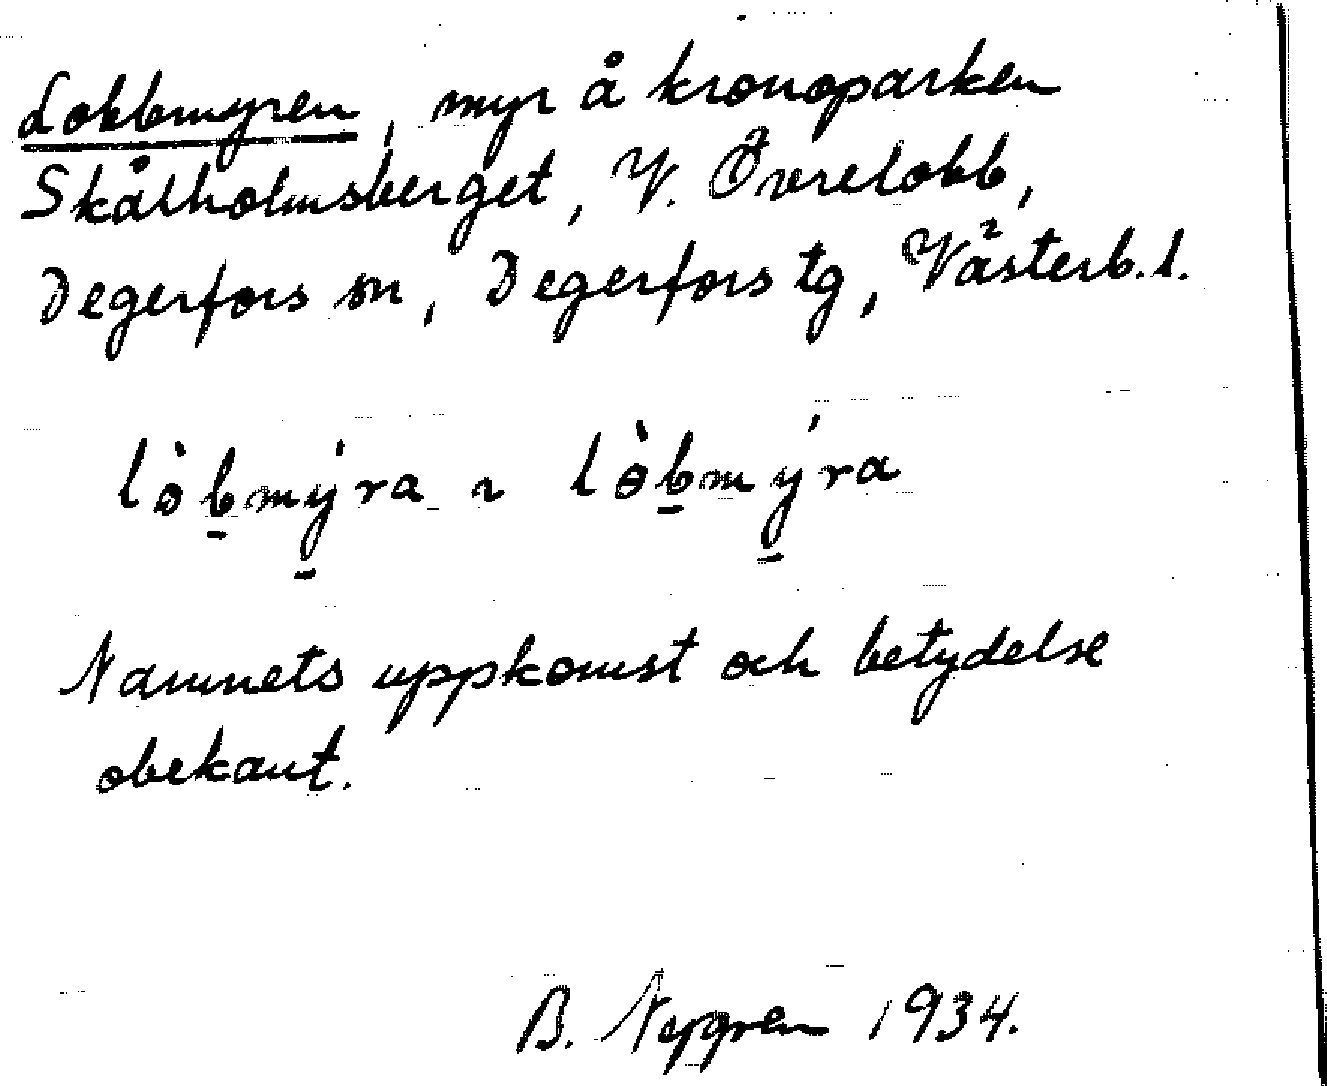 Lobbmyren, myr å kronoparken
Skålholmsberget, V. Övrelobb,
Degerfors sn, Degerfors tg, Västerb. l.
lòb̠mý̠ra ~ lòb̠mý̠ra
Namnets uppkomst och betydelse
obekant.
B. Nygren 1934.